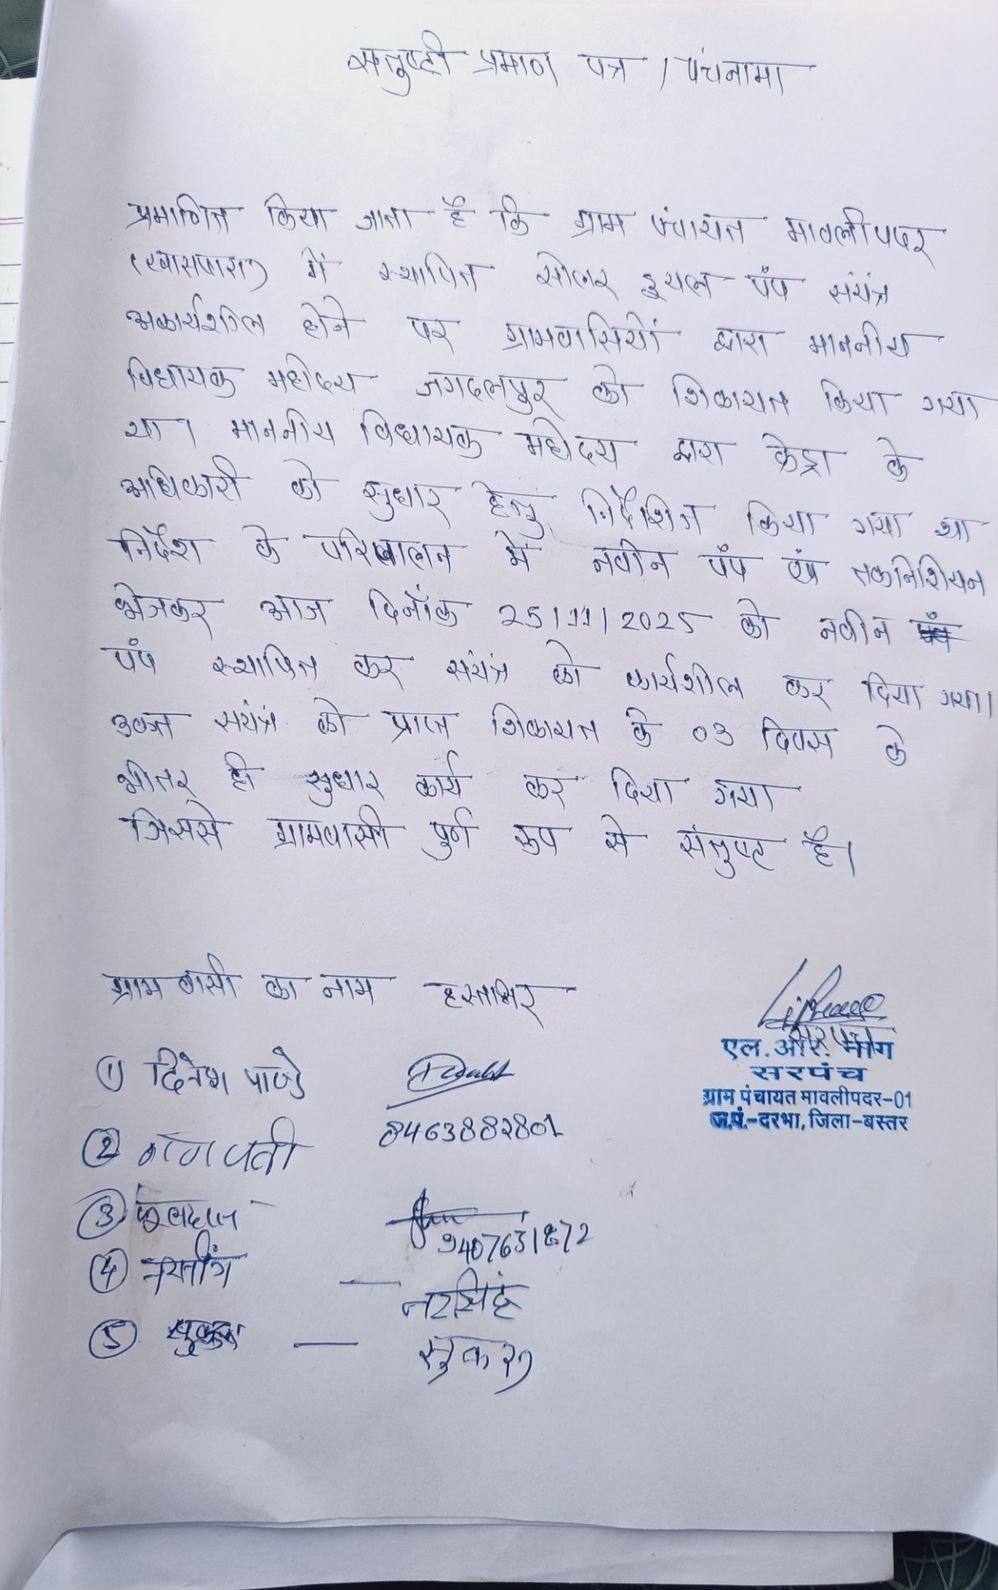 सतुष्टी प्रमाण पत्र / पंचनामा
प्रमाणित किया जाता है कि ग्राम पंचायत मावलीपदर
(खासपारा) में स्थापित सोलर डुयल पंप संयंत्र
अकार्यशील होने पर ग्रामवासियों द्वारा माननीय
विधायक महोदय जगदलपुर को शिकायत किया गया
था। माननीय विधायक महोदय द्वारा क्रेड़ा के
अधिकारी को सुधार हेतु निर्देशित किया गया था
निर्देश के परिपालन में नवीन पंप एंव तकनिशियन
भेजकर आज दिनाँक 25/11/2025 को नवीन
पंप स्थापित कर संयंत्र को कार्यशील कर दिया गया।
उक्त सयंत्र को प्राप्त शिकायत के 03 दिवस के
भीतर ही सुधार कार्य कर दिया गया
जिससे ग्रामवासी पुर्ण रूप से संतुष्ट है।
ग्रामवासी का नाम हस्ताक्षर
① दिनेश पाण्डे
8463882801
② गणपती
③
9407631872
④ —
नरसिंह
⑤ —
सुकरा
सरपंच
एल. आर. नाग
सरपंच
ग्राम पंचायत मावलीपदर-01
ज.पं.-दरभा, जिला-बस्तर